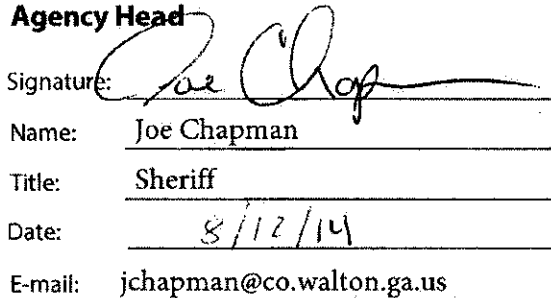 Agency Head
Signature: Joe Chap
Name: Joe Chapman
Title: Sheriff
Date: 8/12/14
E-mail: jchapman@co.walton.ga.us